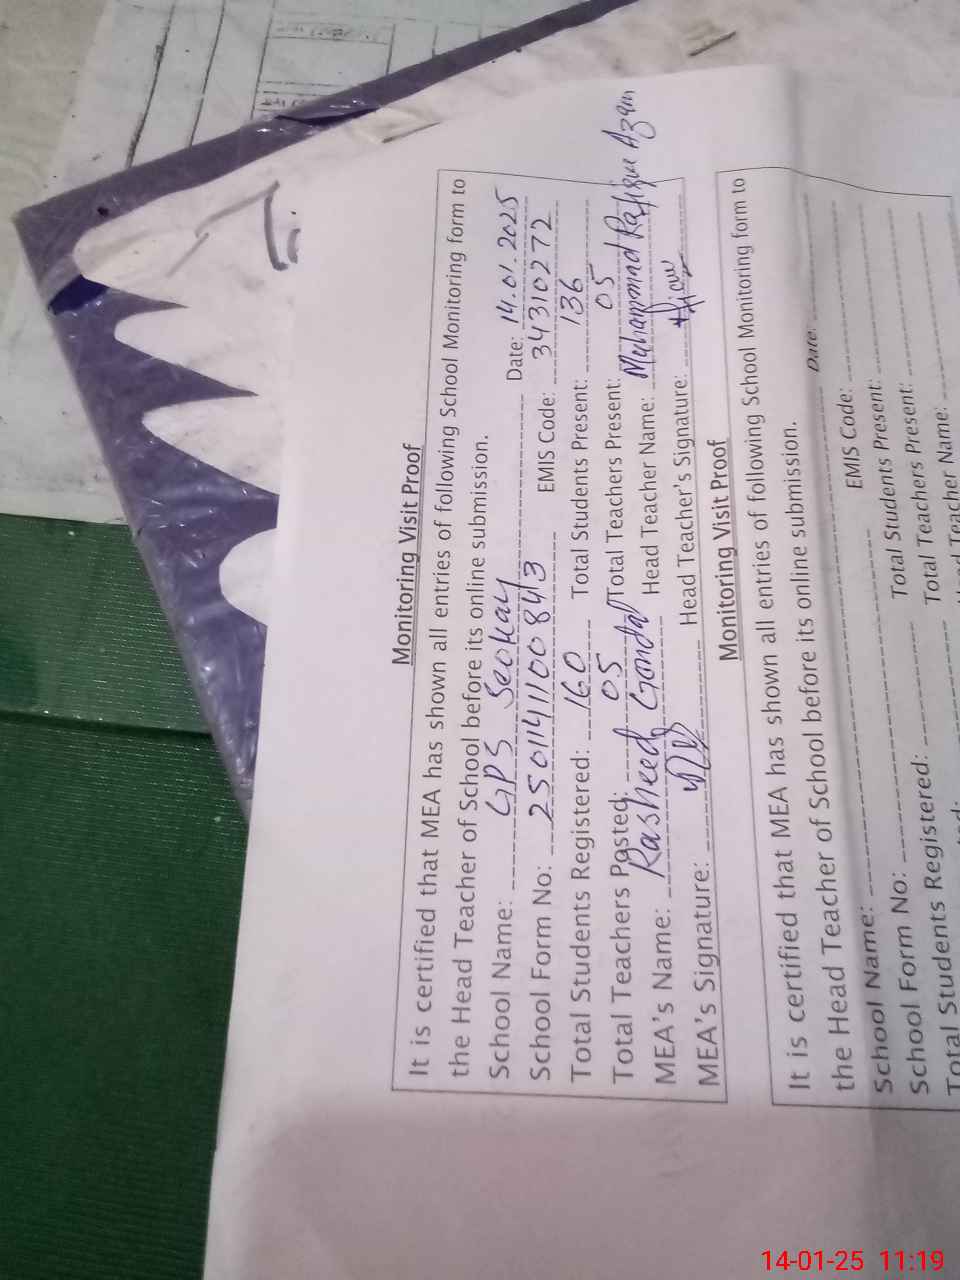 Monitoring Visit Proof
It is certified that MEA has shown all entries of following School Monitoring form to
the Head Teacher of School before its online submission.
School Name: GPS Seokay Date: 14.01.2025
School Form No: 2501141100843 EMIS Code: 34310272
Total Students Registered: 160 Total Students Present: 136
Total Teachers Posted: 05 Total Teachers Present: 05
MEA's Name: Rasheed Gondal Head Teacher Name: Muhammad Rafique Azam
MEA's Signature: Head Teacher's Signature:
Monitoring Visit Proof
It is certified that MEA has shown all entries of following School Monitoring form to
the Head Teacher of School before its online submission.
School Name: Date:
School Form No: EMIS Code:
Total Students Registered: Total Students Present:
Total Teachers Present:
Teacher Name:
14-01-25 11:19